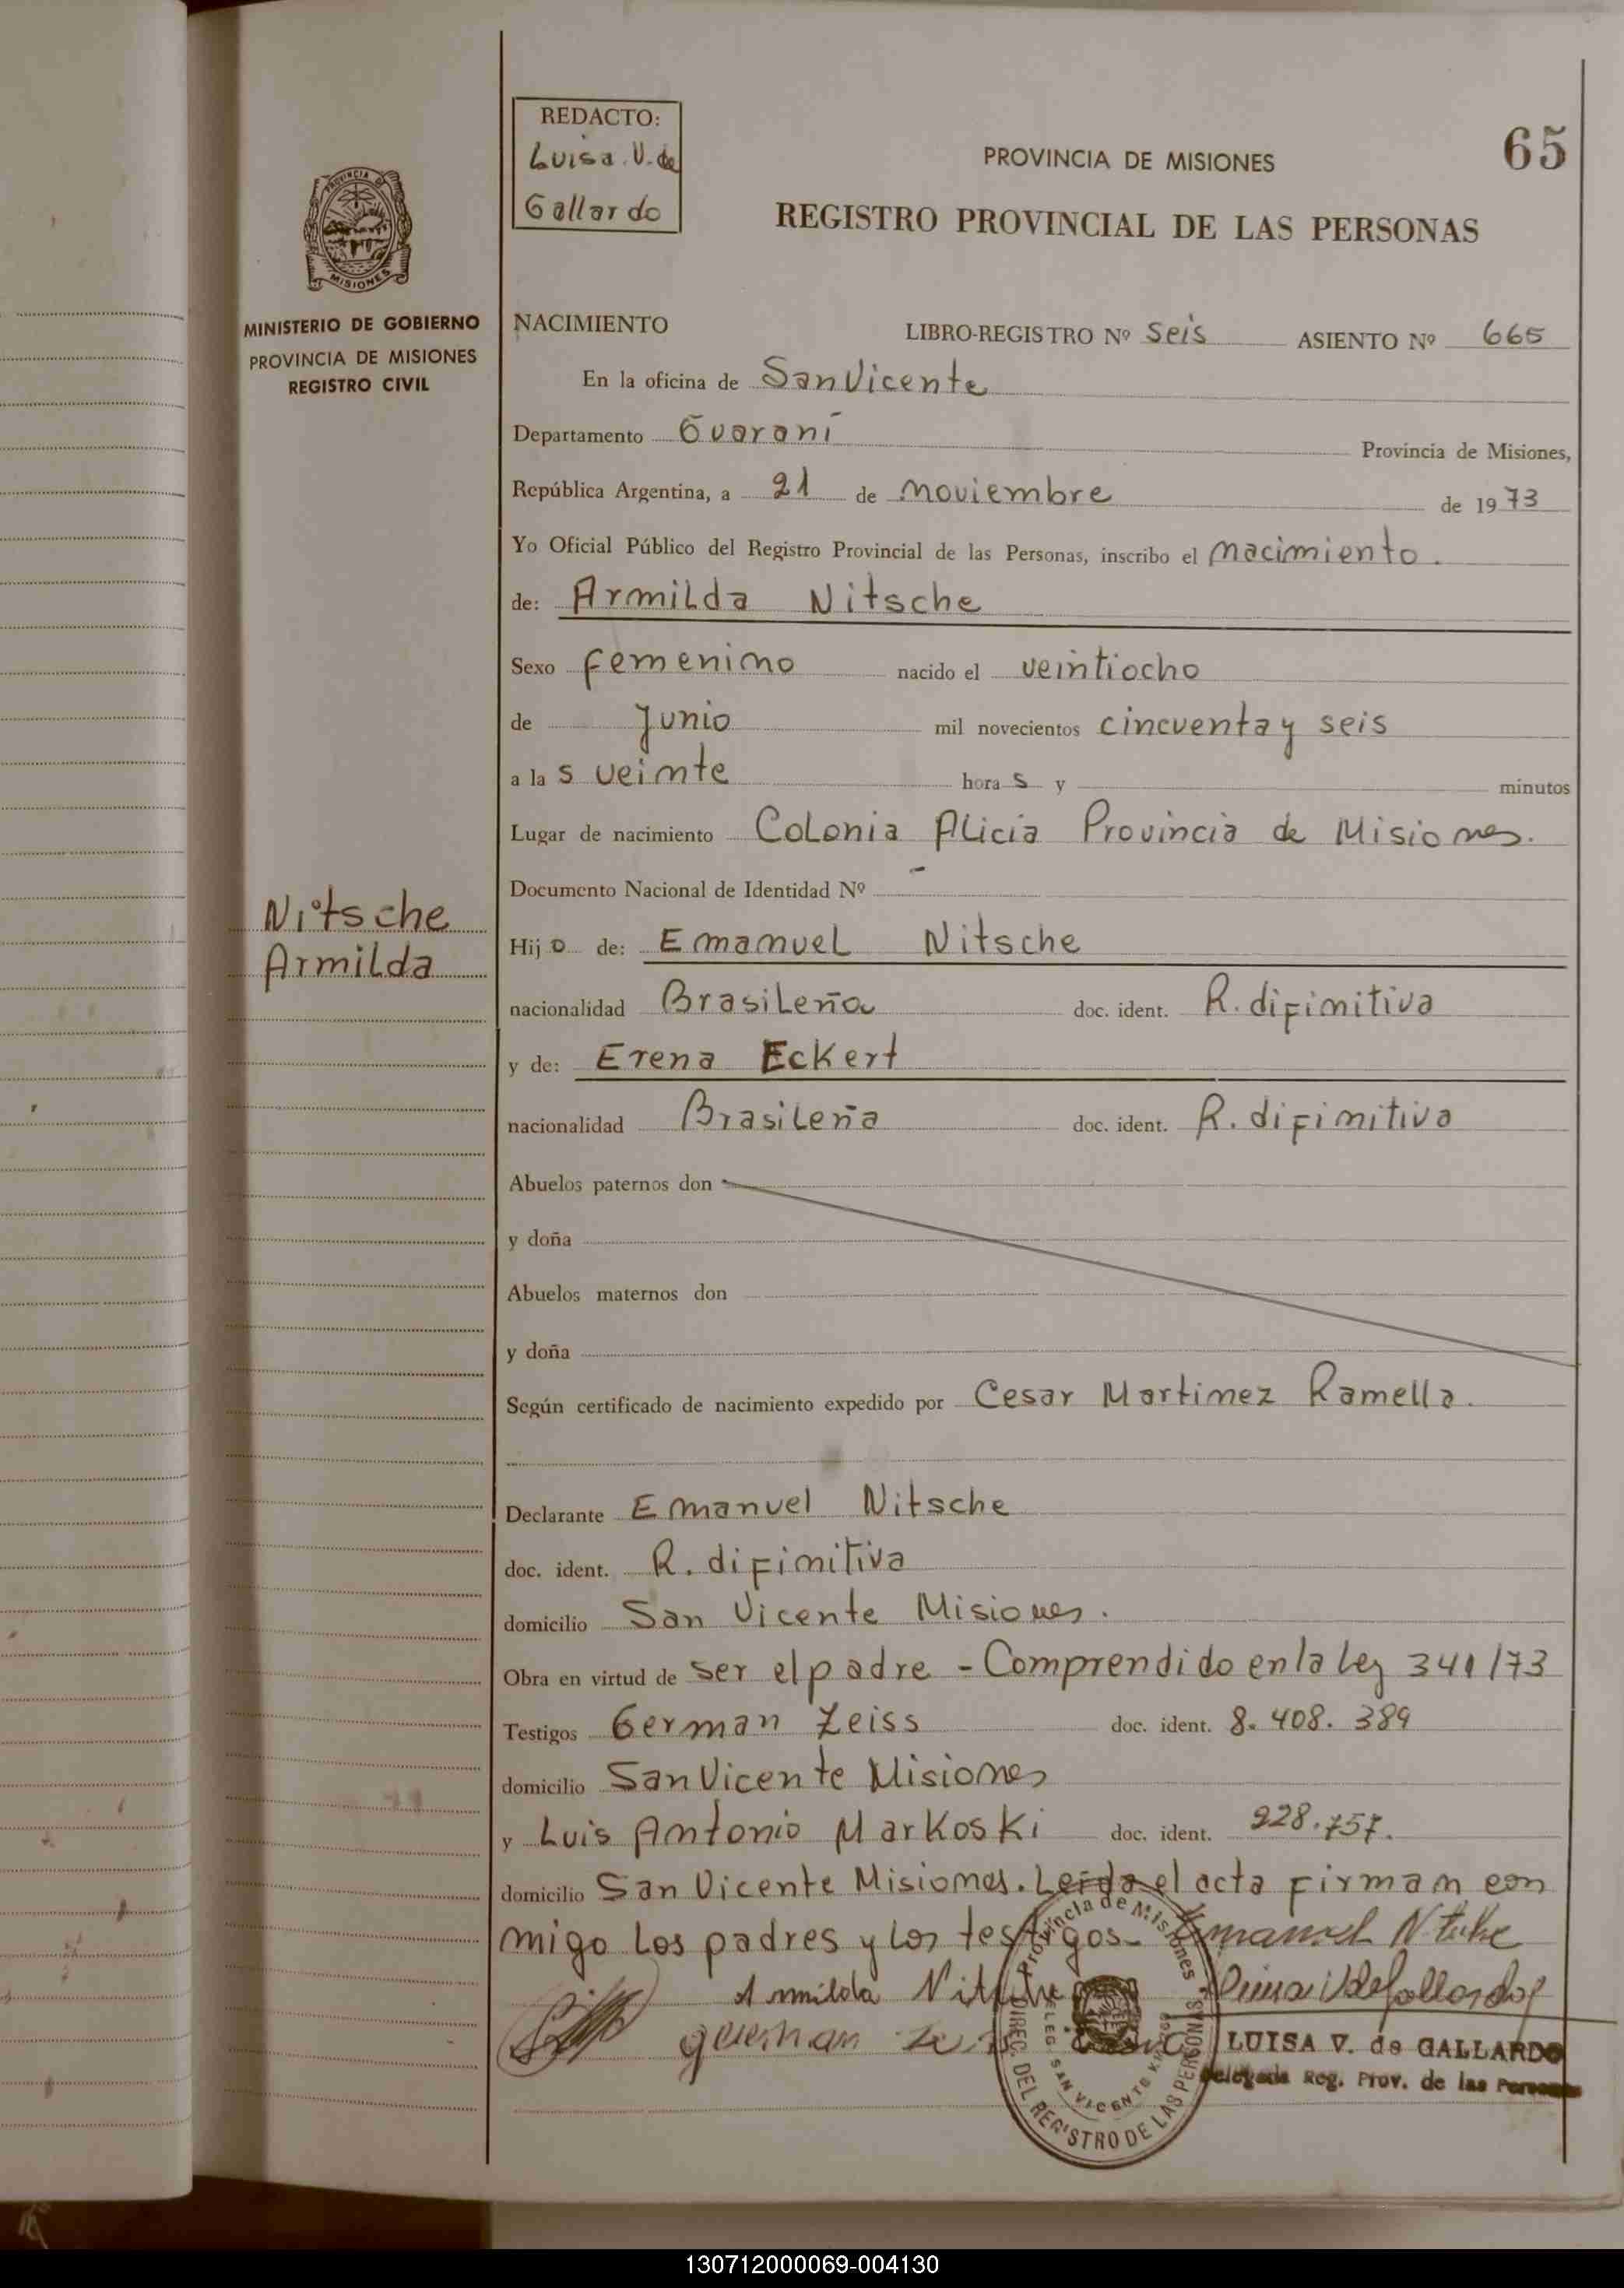 REDACTO:
Luisa. V. de
Gallardo
65
PROVINCIA DE MISIONES
REGISTRO PROVINCIAL DE LAS PERSONAS
PROVINCIA DE
MISIONES
MINISTERIO DE GOBIERNO
PROVINCIA DE MISIONES
REGISTRO CIVIL
NACIMIENTO LIBRO-REGISTRO Nº Seis ASIENTO Nº 665
En la oficina de San Vicente
Departamento Guaraní Provincia de Misiones,
República Argentina, a 21 de noviembre de 1973
Yo Oficial Público del Registro Provincial de las Personas, inscribo el nacimiento.
de: Armilda Nitsche
Sexo femenino nacido el veintiocho
de Junio mil novecientos cincuenta y seis
a la s veinte hora s y minutos
Lugar de nacimiento Colonia Alicia Provincia de Misiones.
Documento Nacional de Identidad Nº -
Nitsche
Armilda
Hij o de: Emanuel Nitsche
nacionalidad Brasileña doc. ident. R. difinitiva
y de: Erena Eckert
nacionalidad Brasileña doc. ident. R. difinitiva
Abuelos paternos don
y doña
Abuelos maternos don
y doña
Según certificado de nacimiento expedido por Cesar Martinez Ramella.
Declarante Emanuel Nitsche
doc. ident. R. difinitiva
domicilio San Vicente Misiones.
Obra en virtud de ser el padre - Comprendido en la Ley 341/73
Testigos German Zeiss doc. ident. 8. 408. 389
domicilio San Vicente Misiones
y Luis Antonio Markoski doc. ident. 928.757.
domicilio San Vicente Misiones. Leida el acta firman con
migo los padres y los testigos-
Armilda
LUISA V. de GALLARDO
Delegada Reg. Prov. de las Personas
Provincia de Misiones
DIREC. DEL REGISTRO DE LAS PERSONAS
DELEG. SAN VICENTE
130712000069-004130